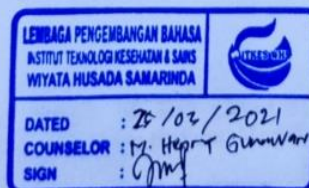 LEMBAGA PENGEMBANGAN BAHASA
INSTITUT TEKNOLOGI KESEHATAN & SAINS
WIYATA HUSADA SAMARINDA
DATED : 25/02/2021
COUNSELOR : M.
SIGN :